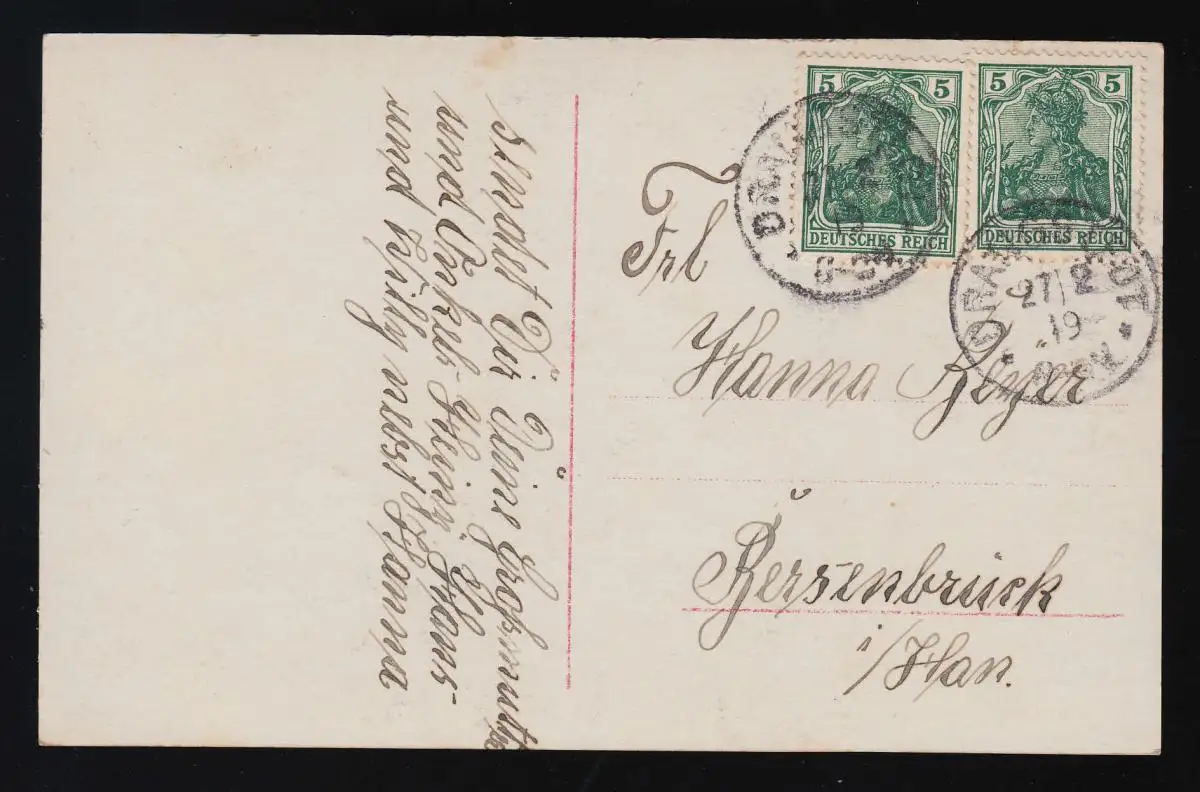 sendet Dir Deine Großmutter
und Onkels Heinr. Hans-
und Willy nebst Hanna
5 5
DEUTSCHES REICH
5 5
DEUTSCHES REICH
27 2
19
Frl
Hanna Beyer
Bersenbrück
i/Han.